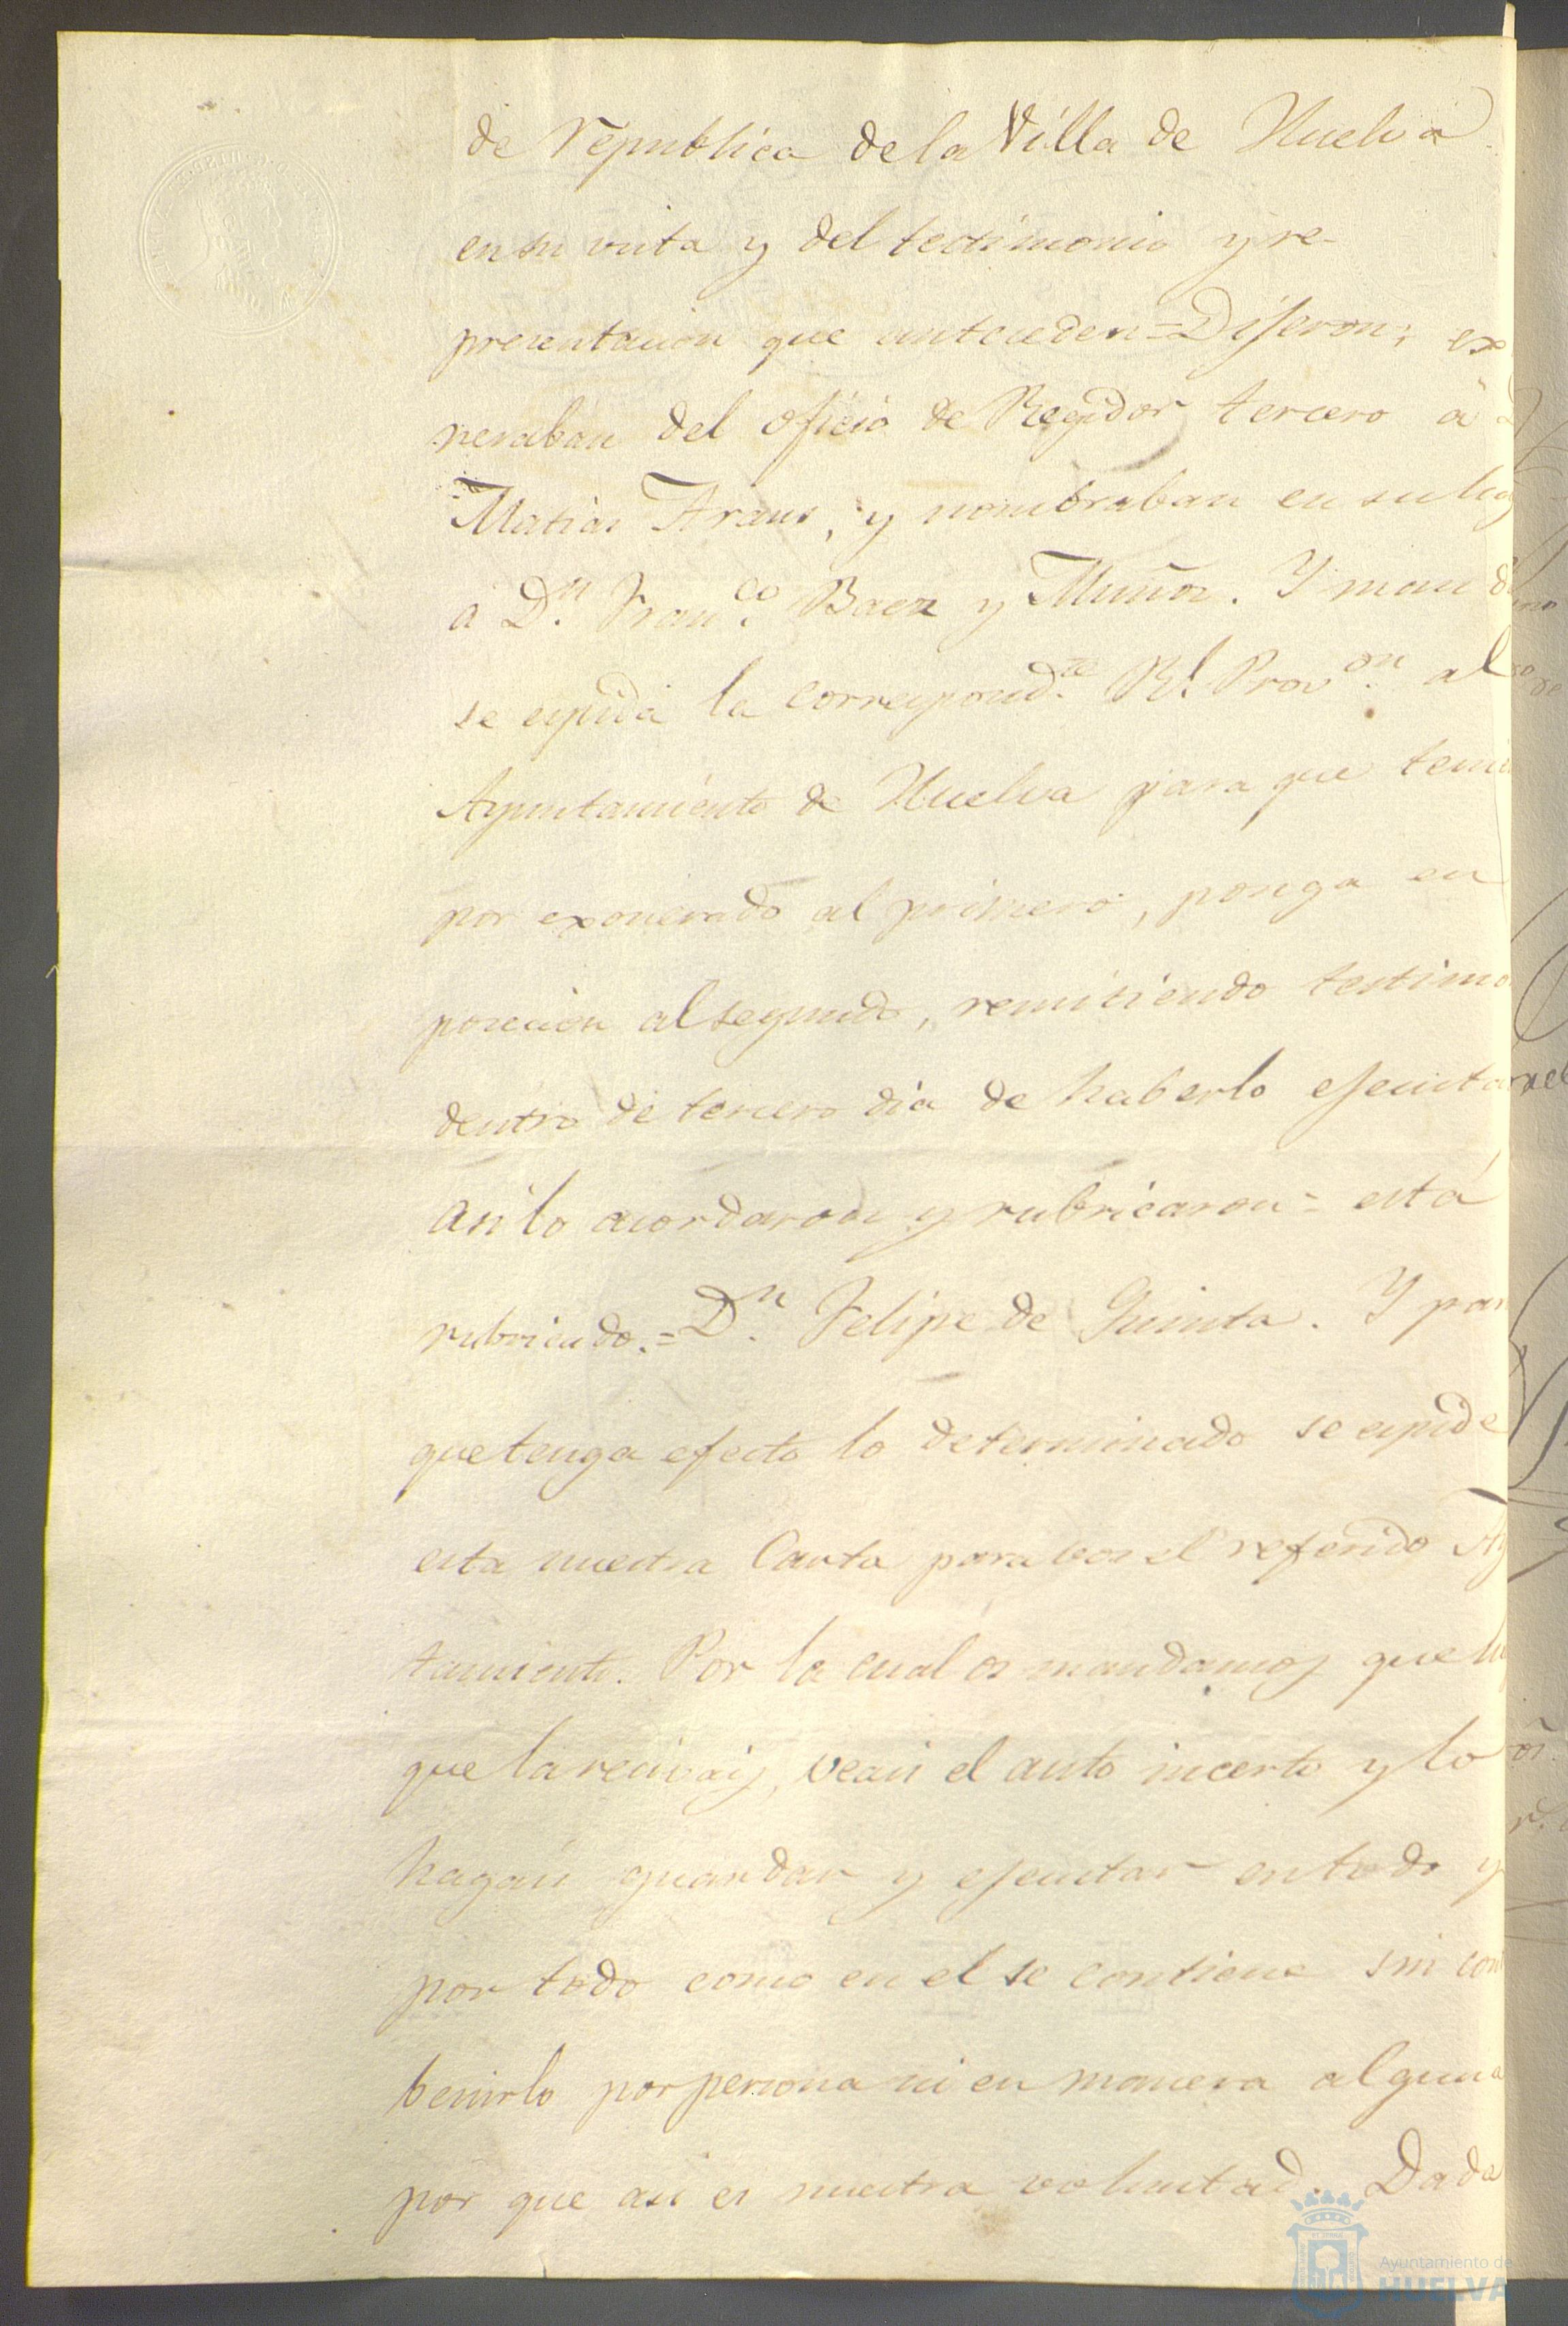 de republica de la Villa de Huelva
en su vista y del testimonio y re-
presentacion que anteceden = Dijeron; ex
neraban del oficio de Regidor tercero a D
Matias Araus, y nombraban en su lug
a D.n Fran.co Baez y Muñoz. Y mand
se espida la correspond.te R.l Prov.on al
Ayuntamiento de Huelva para que teni
por exonerado al primero, ponga en
posecion al segundo, remitiendo testimo
dentro de tercero dia de haberlo ejecuta
asi lo acordaron y rubricaron = está
rubricado. = D.n Felipe de Quinta. Y par
que tenga efecto lo determinado se espide
esta nuestra Carta para vos el referido Ay
tamiento. Por la cual os mandamos que lu
que la recivais, veais el auto incerto y lo
hagais guardar y ejecutar en todo y
por todo como en el se contiene sin con
benirlo por persona ni en manera alguna
por que asi es nuestra voluntad. Dada
Ayuntamiento de
HUELVA